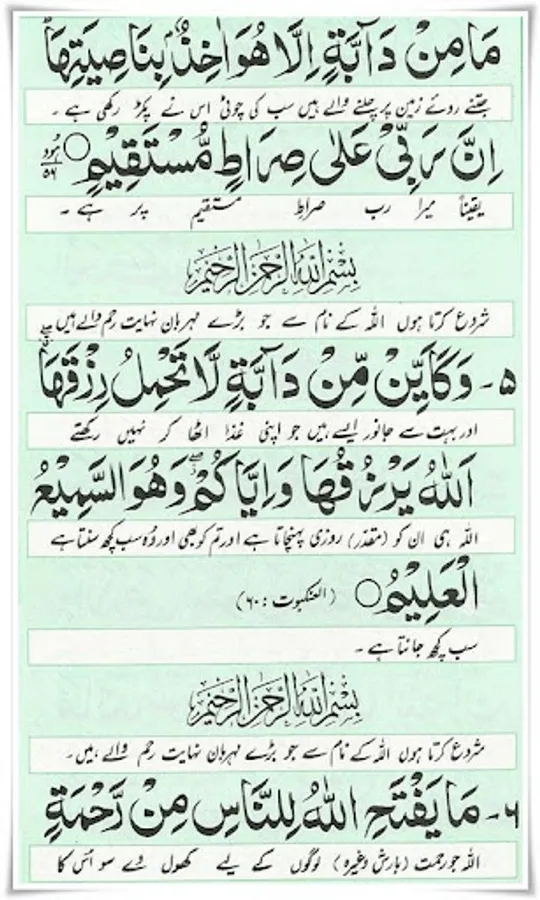 مَا مِنْ دَآبَّةٍ اِلَّا هُوَ اٰخِذٌۢ بِنَاصِيَتِهَاؕ
جتنے روئے زمین پر چلنے والے ہیں سب کی چوٹی اس نے پکڑ رکھی ہے ۔
اِنَّ رَبِّیْ عَلٰی صِرَاطٍ مُّسْتَقِیْمٍ ○ ہُود ۵۶
یقیناً میرا رب صراطِ مستقیم پر ہے ۔
بِسْمِ اللهِ الرَّحْمٰنِ الرَّحِيْمِ
شروع کرتا ہوں اللہ کے نام سے جو بڑے مہربان نہایت رحم والے ہیں
۵ - وَكَاَيِّنْ مِّنْ دَآبَّةٍ لَّا تَحْمِلُ رِزْقَهَا
اور بہت سے جانور ایسے ہیں جو اپنی غذا اٹھا کر نہیں رکھتے
اَللهُ يَرْزُقُهَا وَاِيَّاكُمْ وَهُوَ السَّمِيْعُ
اللہ ہی ان کو (مقدّر) روزی پہنچاتا ہے اور تم کو بھی اور وُہ سب کچھ سنتا ہے
الْعَلِيْمُ ○ (العنکبوت : ۶۰)
سب کچھ جانتا ہے ۔
بِسْمِ اللهِ الرَّحْمٰنِ الرَّحِيْمِ
شروع کرتا ہوں اللہ کے نام سے جو بڑے مہربان نہایت رحم والے ہیں۔
۶ - مَا يَفْتَحِ اللهُ لِلنَّاسِ مِنْ رَّحْمَةٍ
اللہ جو رحمت (بارش وغیرہ) لوگوں کے لیے کھول دے سو اُس کا